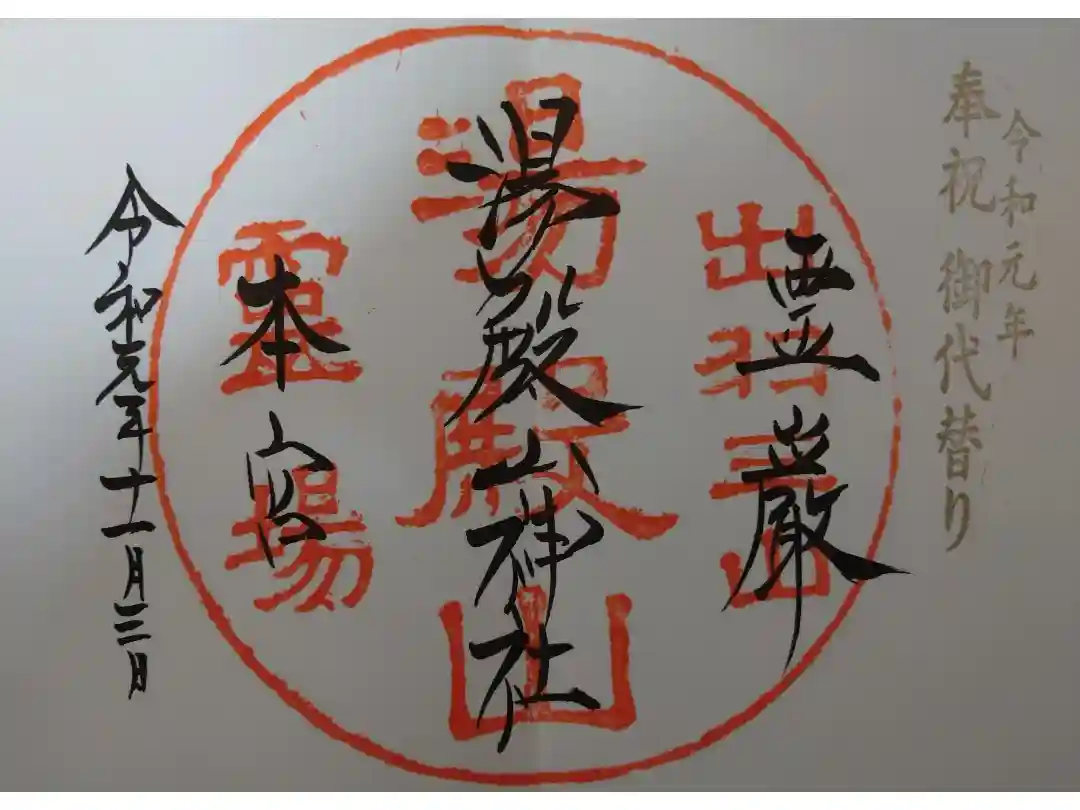 令和元年
奉祝 御代替り
霊巌
出羽三山
湯殿山神社
湯殿山
本宮
靈場
令和元年十一月三日